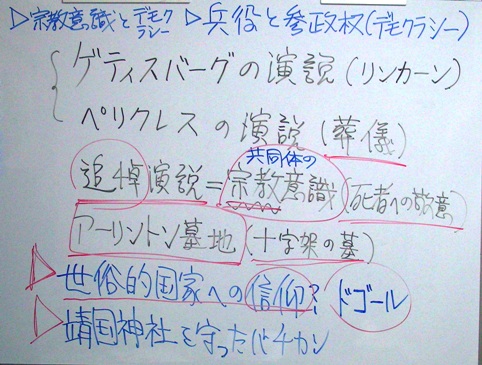 ▷宗教意識とデモクラシー ▷兵役と参政権(デモクラシー)
ゲティスバーグの演説(リンカーン)
ペリクレスの演説(葬儀)
共同体の
追悼演説=宗教意識(死者への敬意)
アーリントン墓地(十字架の墓)
▷世俗的国家への信仰? ドゴール
▷靖国神社を守ったバチカン